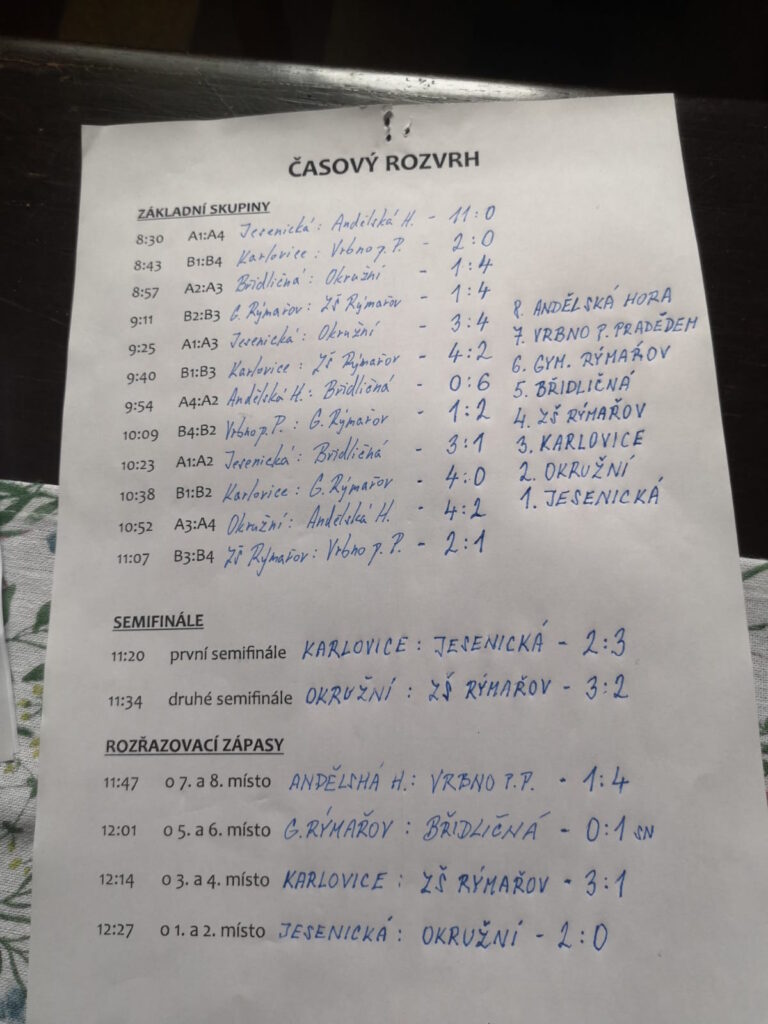 ČASOVÝ ROZVRH
ZÁKLADNÍ SKUPINY
8:30 A1:A4 Jesenická : Andělská H. - 11:0
8:43 B1:B4 Karlovice : Vrbno p. P. - 2:0
8:57 A2:A3 Břidličná : Okružní - 1:4
9:11 B2:B3 G. Rýmařov : ZŠ Rýmařov - 1:4
9:25 A1:A3 Jesenická : Okružní - 3:4
9:40 B1:B3 Karlovice : ZŠ Rýmařov - 4:2
9:54 A4:A2 Andělská H. : Břidličná - 0:6
10:09 B4:B2 Vrbno p. P. : G. Rýmařov - 1:2
10:23 A1:A2 Jesenická : Břidličná - 3:1
10:38 B1:B2 Karlovice : G. Rýmařov - 4:0
10:52 A3:A4 Okružní : Andělská H. - 4:2
11:07 B3:B4 ZŠ Rýmařov : Vrbno p. P. - 2:1
8. ANDĚLSKÁ HORA
7. VRBNO P. PRADĚDEM
6. GYM. RÝMAŘOV
5. BŘIDLIČNÁ
4. ZŠ RÝMAŘOV
3. KARLOVICE
2. OKRUŽNÍ
1. JESENICKÁ
SEMIFINÁLE
11:20 první semifinále KARLOVICE : JESENICKÁ - 2:3
11:34 druhé semifinále OKRUŽNÍ : ZŠ RÝMAŘOV - 3:2
ROZŘAZOVACÍ ZÁPASY
11:47 o 7. a 8. místo ANDĚLSKÁ H. : VRBNO P.P. - 1:4
12:01 o 5. a 6. místo G. RÝMAŘOV : BŘIDLIČNÁ - 0:1 SN
12:14 o 3. a 4. místo KARLOVICE : ZŠ RÝMAŘOV - 3:1
12:27 o 1. a 2. místo JESENICKÁ : OKRUŽNÍ - 2:0